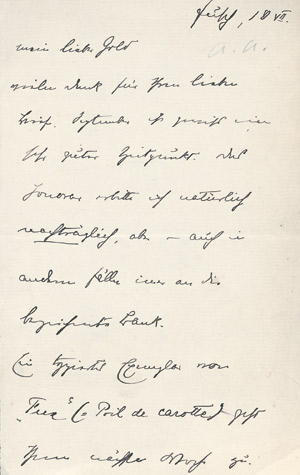 Fusch, 18 VII.
mein lieber Gold
vielen Dank für Ihren lieben
Brief. September ist gewiß ein
sehr guter Zeitpunkt. Das
Honorar erbitte ich natürlich
nachträglich, aber – auch in
andern Fällen immer an die
Bank.
Ein Exemplar von
"Fuex" (= Poil de carotte) geht
Ihnen nächste Woche zu.